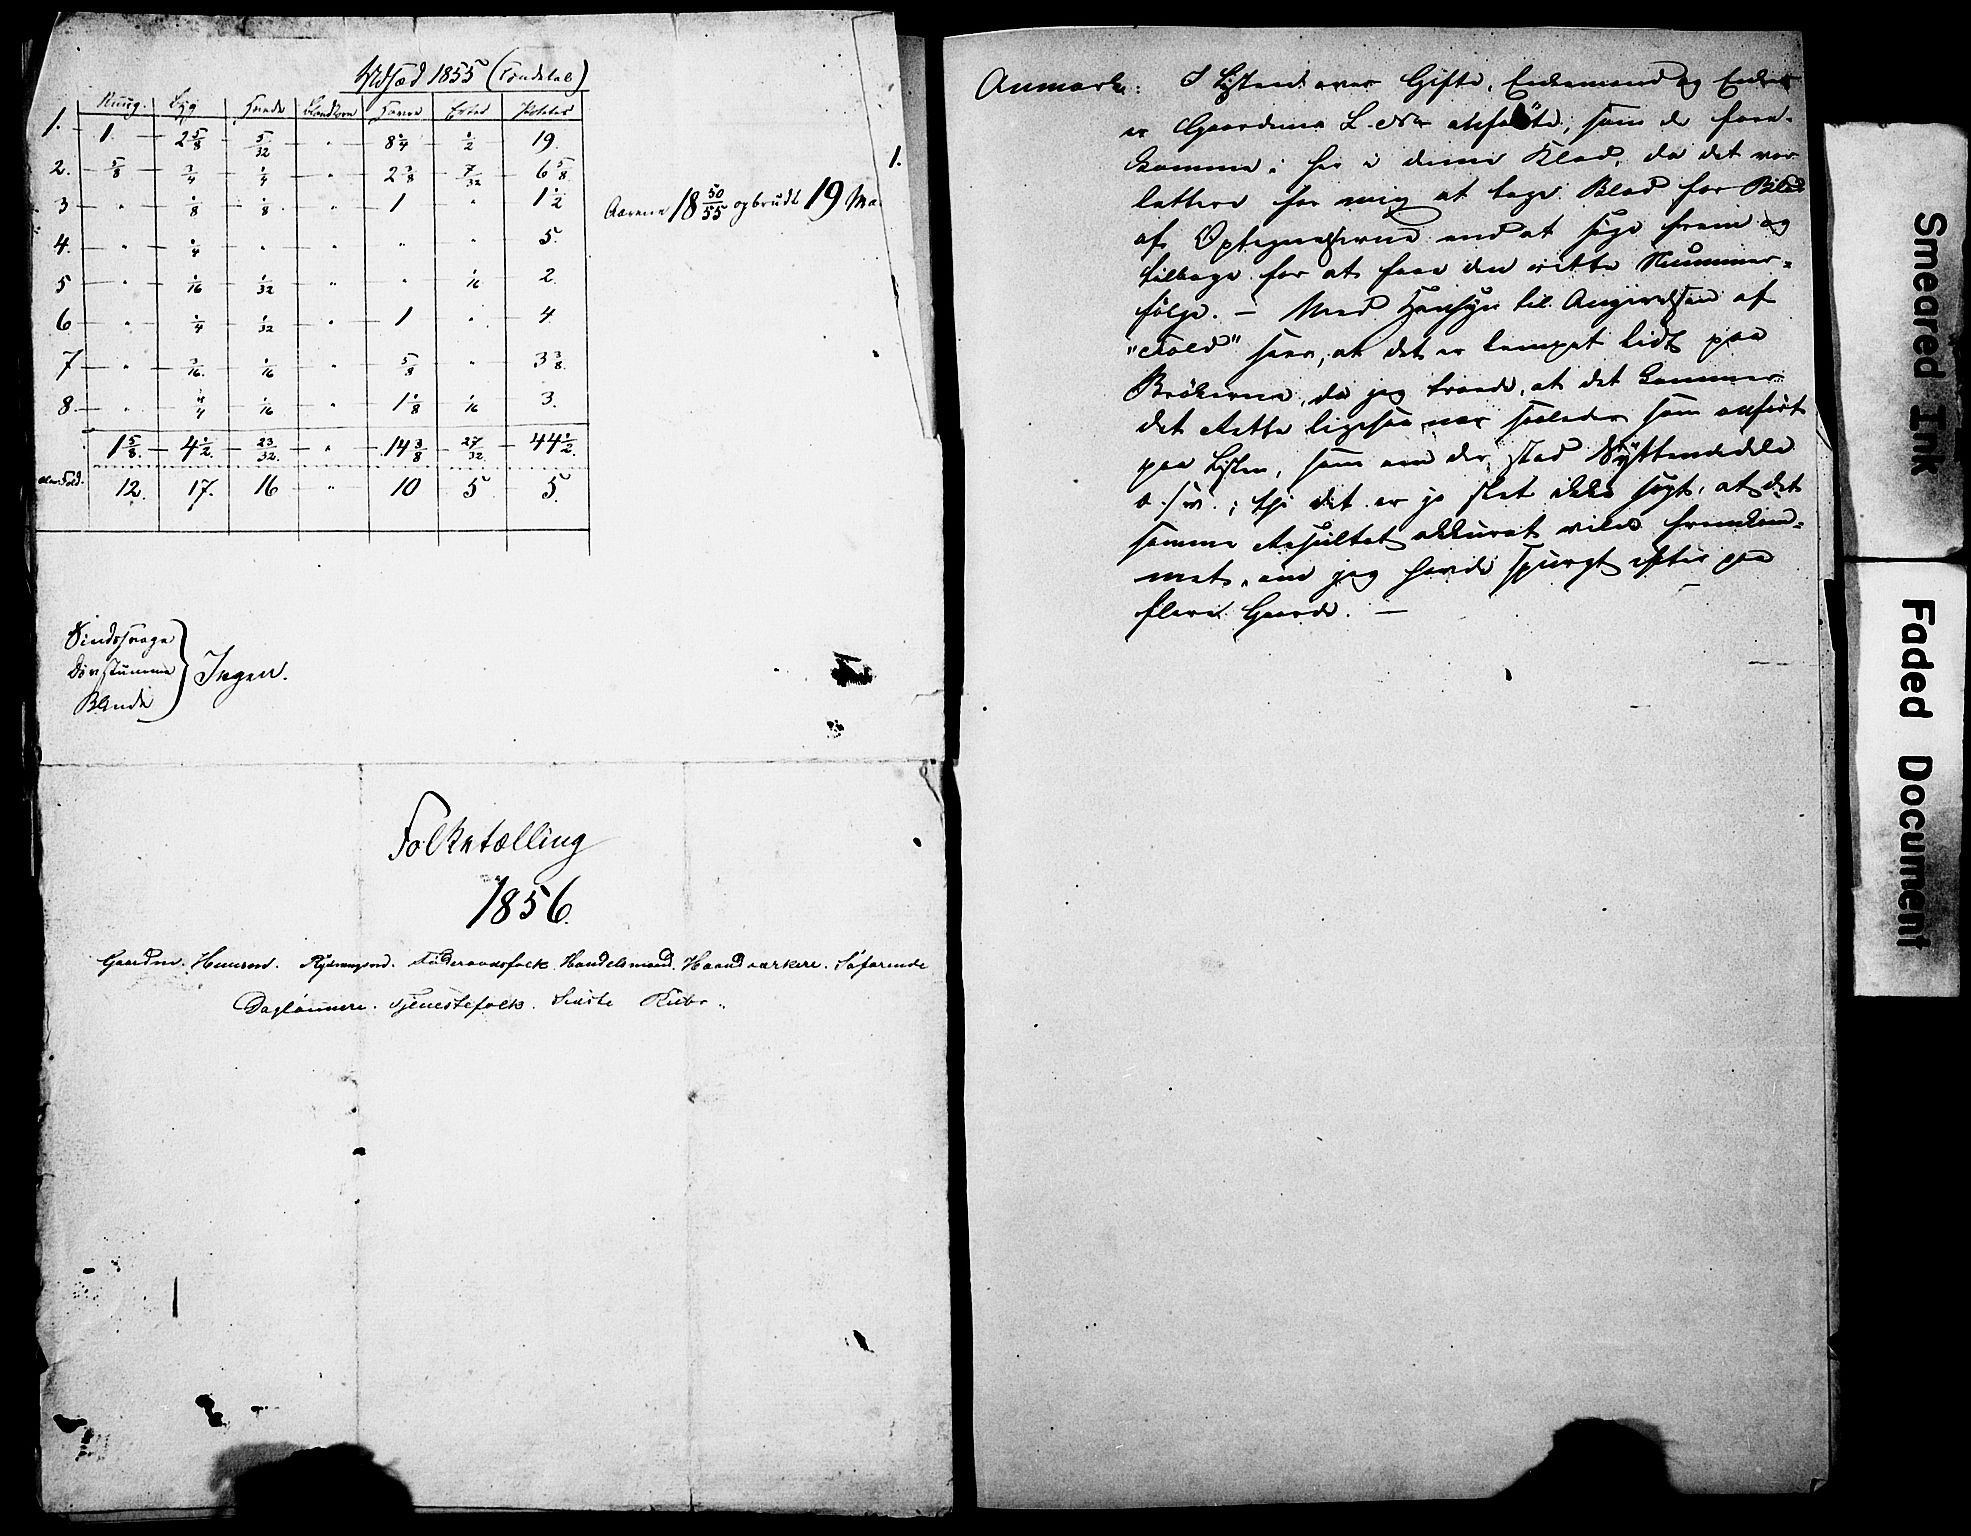 Udsæd 1855 (Tøndetal)
Rung. Byg Hvede Blandkorn Havre Erter Poteter
1. 1. 2 5/8 5/32 " 8 1/4 1/2 19.
2. 5/8 3/4 1/4 " 2 3/8 7/32 6 5/8.
3 " 1/8 1/8. " 1 " 1 1/2
4. " 1/4 " " " " 5.
5 " 1/16 1/32 " " 1/16 2.
6 " 1/4 1/32 " 1 " 4.
7 " 3/16. 1/16 " 5/8 " 3 3/8.
8. " 1/4 1/16 " 1 1/8 1/16 3.
1 5/8. 4 1/2. 23/32. " 14 3/8 27/32 44 1/2.
Fold. 12. 17. 16 " 10 5. 5.
Aarene 18 50/55 opbrudt 19 Ma
1.
Sindssvage
Døvstumme
Blinde
Ingen.
Folketælling
1856.
Gaardm. Huusm. Rydningsm. Føderaadsfolk. Handelsmænd. Haandværkere. Søfarende
Daglønnere. Tjenestefolk. Sidste Rubr.
Anmærk: I Listen over Gifte, Enkemænd og Enker
er Gaardenes L. No anførte, som de fore-
komme her i denne Klad, da det var
lettere for mig at tage Blad for Blad
af Optegnelserne end at søge frem og
tilbage for at faae den rette Nummer-
følge. — Med Hensyn til Angivelsen af
"Fold" sees, at det er lempet lidt paa
Brøkerne, da jeg troede, at det kommer
det Rette ligesaa nær saaledes som anført
paa Listen, som om der stod Nyttendedele
o. s. v.; thi det er jo slet ikke sagt, at det
samme Resultat akkurat vilde fremkom-
met, om jeg havde spurgt efter paa
flere Gaarde. —
Smeared Ink
Faded Document